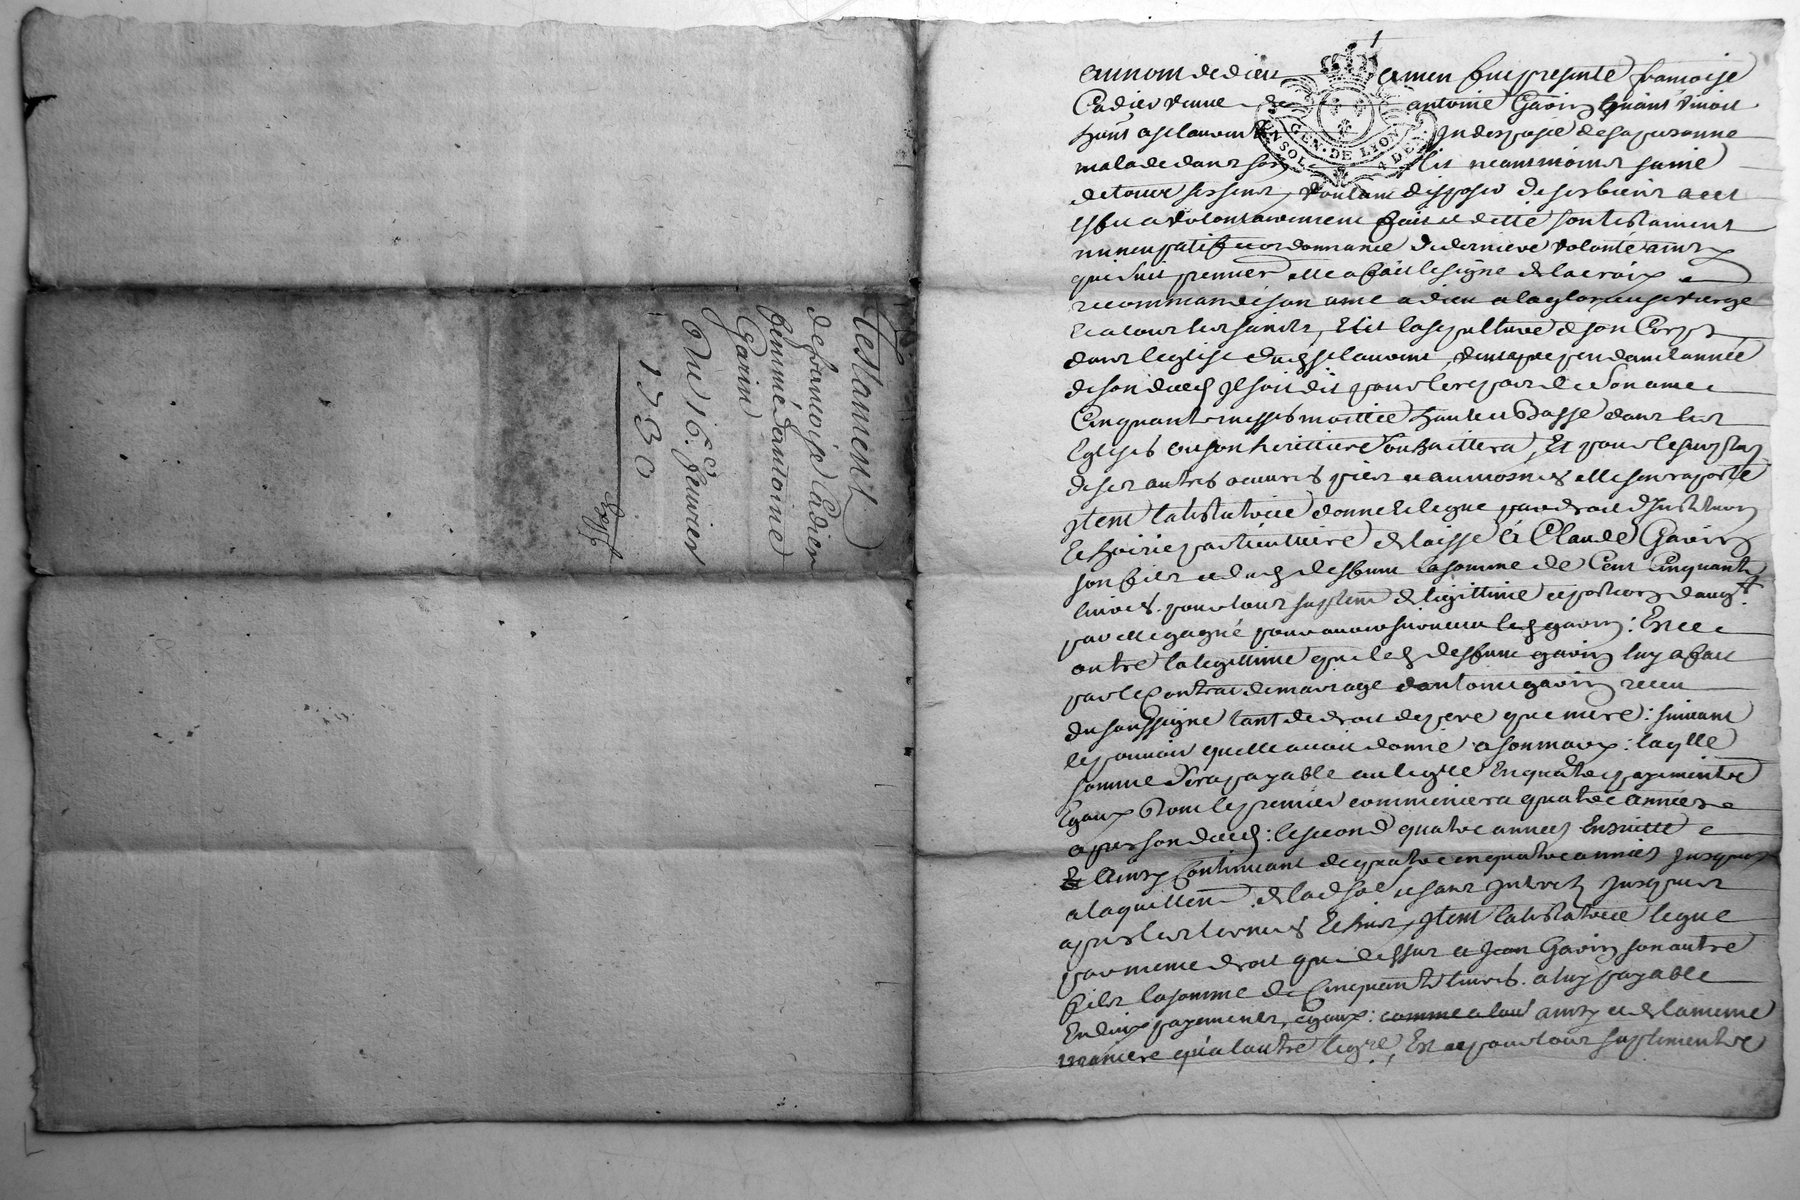 Testament
de francoise Cadier
femme d'antoine
Garin
Du 16e feurier
1730
Expe
1
GEN · DE LYON
au nom de dieu amen fut presente francoise
Cadier veuue de antoine Garin viuant
hant a st laurent Indisposée de sa personne
malade dans son lit neantmoins saine
de tous ses sens, voulant disposer de ses biens a cet
effet a volontairement fait et dicté son testament
nuncupatif et ordonnance de derniere volonté ainsy
que suit premier elle a fait le signe de la croix
recommandé son ame a dieu a la glorieuse vierge
et a tous les saints, Elit la sepulture de son Corps
dans leglise dud st laurent, veut que pendant lannée
de son deced Il soit dit pour le repos de son ame
Cinquante messes moittie haute et Basse dans les
Eglises ou son heritiere souhaittera, Et pour le surplus
de ses autres oeuures pies et aumosnes elle sen raporte
Item la testatrice donne et legue par droit dInstitution
et hoirie particuliere delaisse a Claude Garin
son fils et dud deffunt la somme de Cent Cinquante
liures pour tout suplem de legittime et portion
par elle gagné pour auoir suruecu led garin : Et ce
outre la legittime que led deffunt garin luy a fait
par le Contrat de mariage dantoine garin receu
du soussigne tant de droit de pere que mere : suiuant
le pouuoir quelle auoit donné a son mary : laqlle
somme sera payable aud legre En quatre payements
Egaux dont le premier commencera quatre années
apres son deced : le second quatre années Ensuitte
et ainsy Continuant de quatre en quatre années jusques
a laquittem de lad soe et sans Interets jusques
apres les termes Echus, Item la testatrice legue
par meme droit que dessus a Jean Garin son autre
fils la somme de Cinquante liures a luy payable
En deux payements, Egaux : comme a lau ainsy et de la meme
maniere qu'a lautre legre, Et ce pour tout suplement de